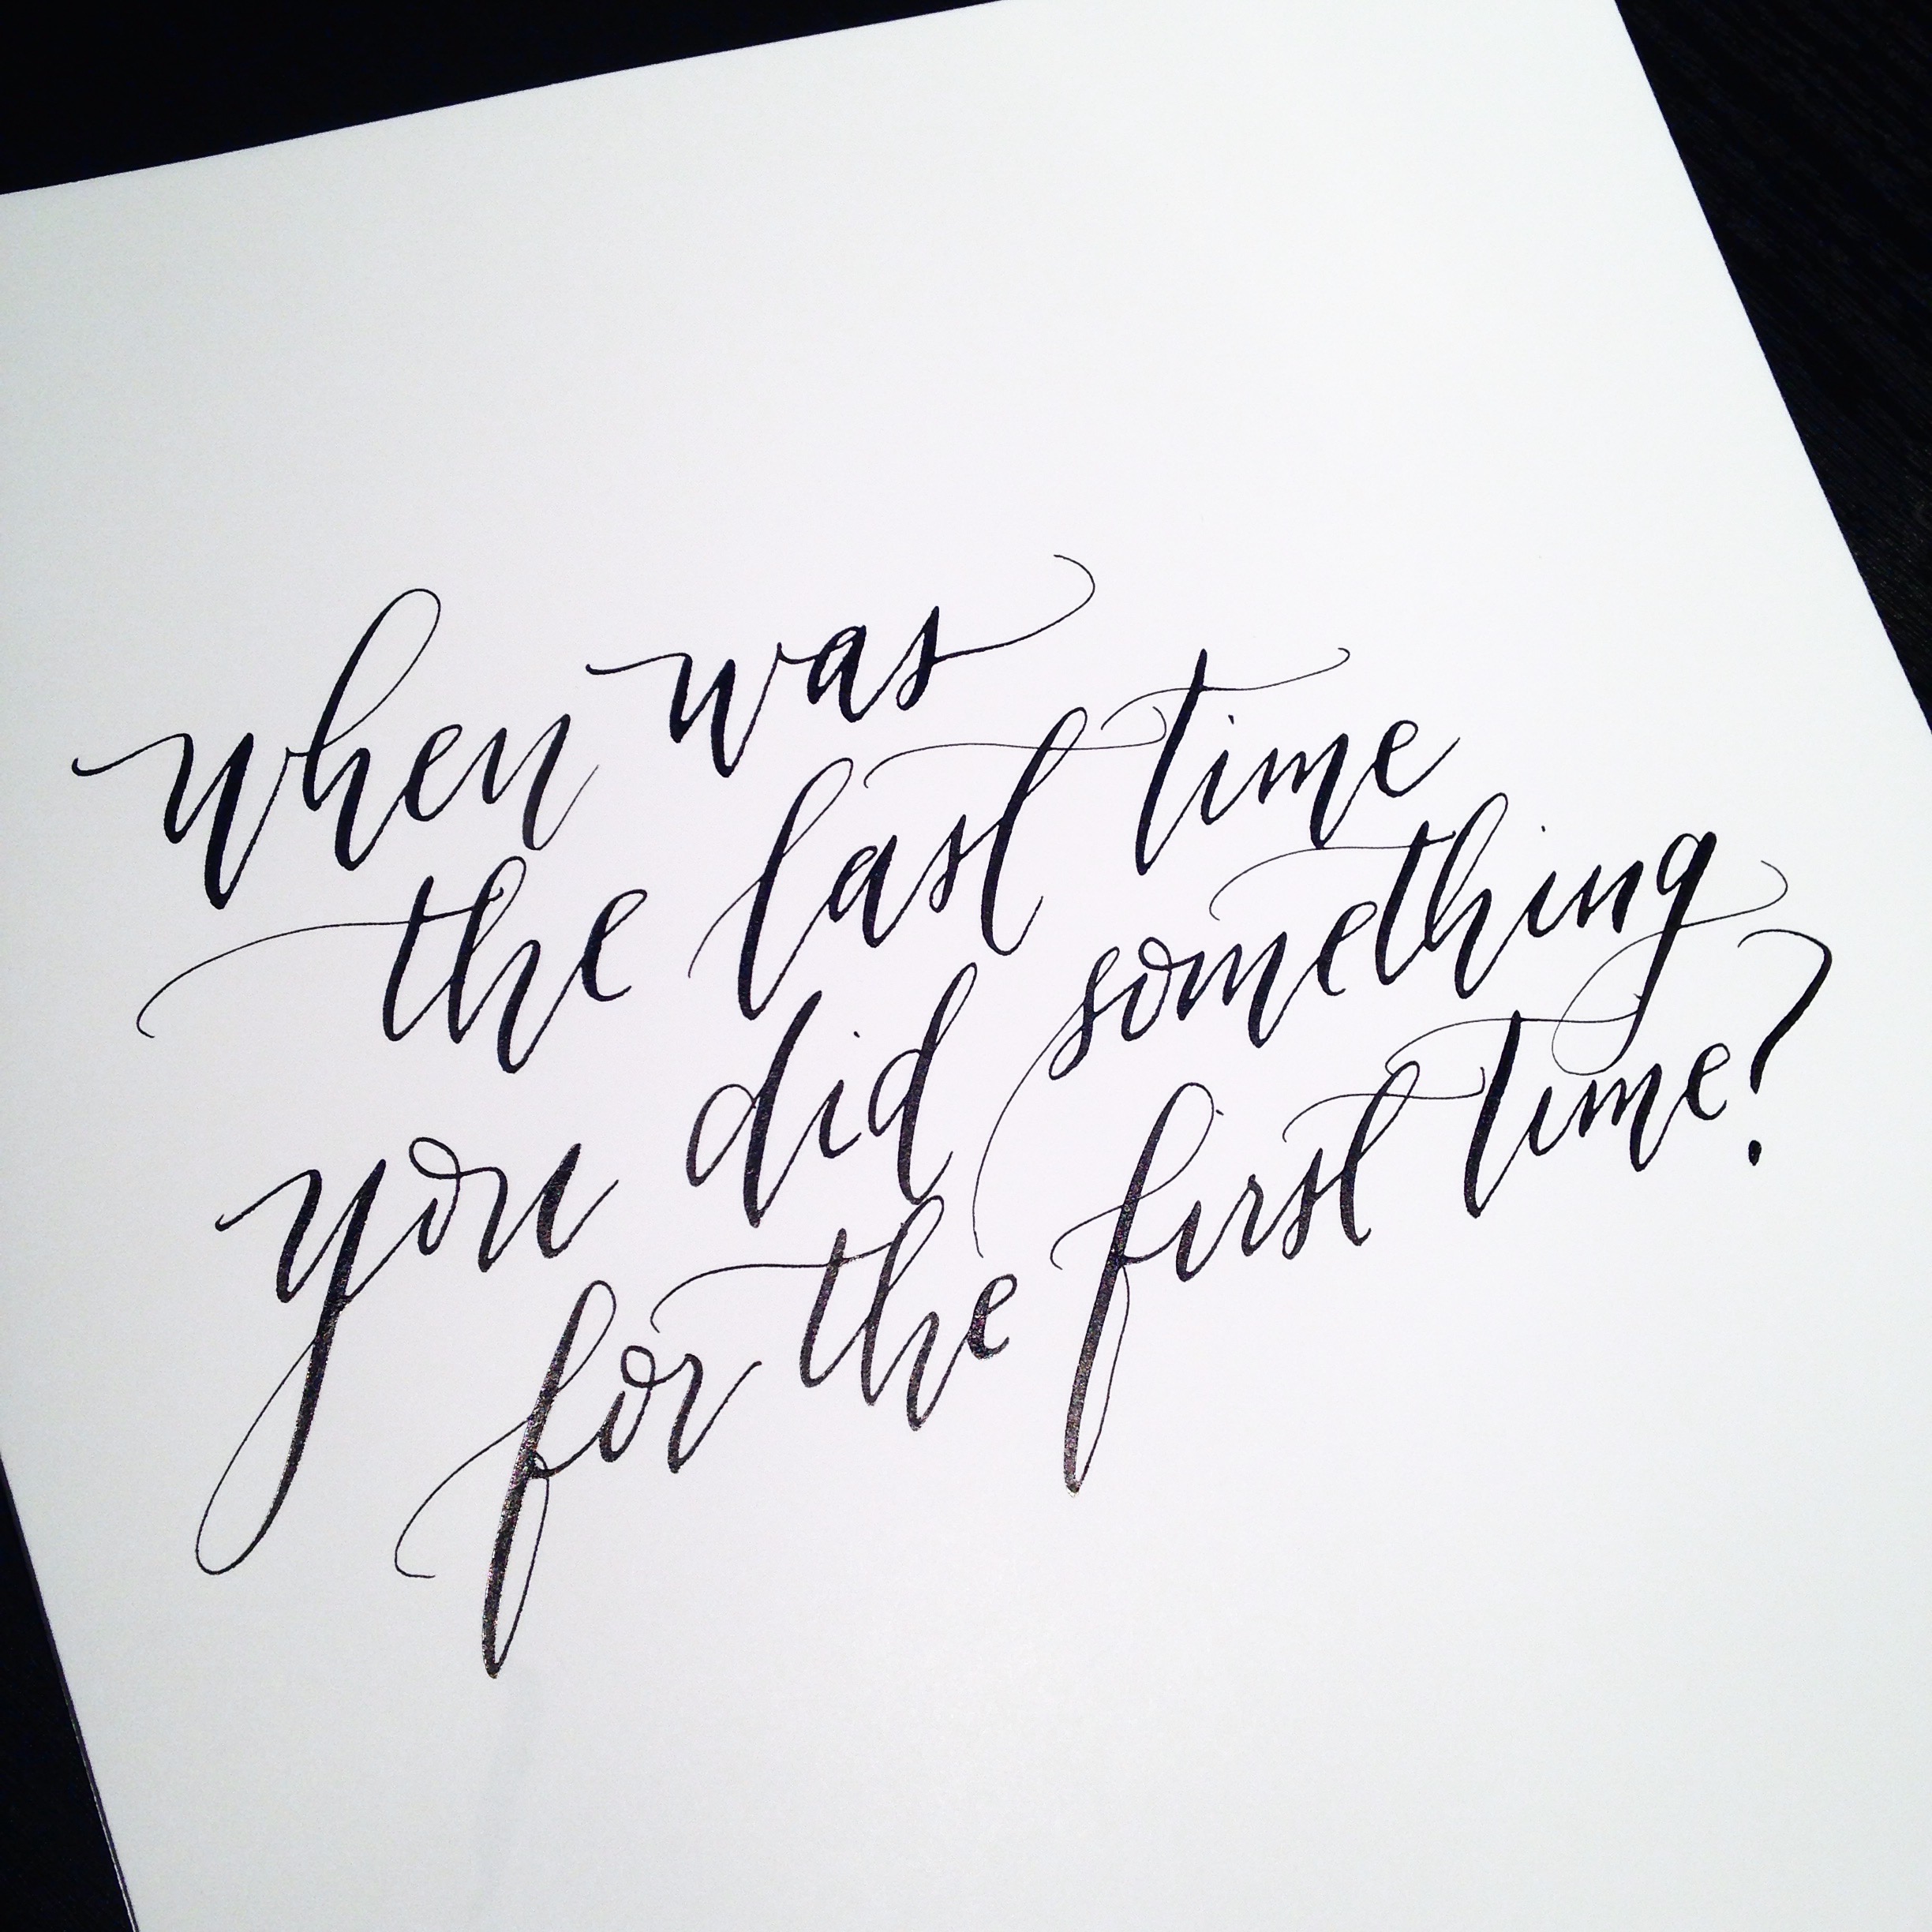 when was
the last time
you did something
for the first time?